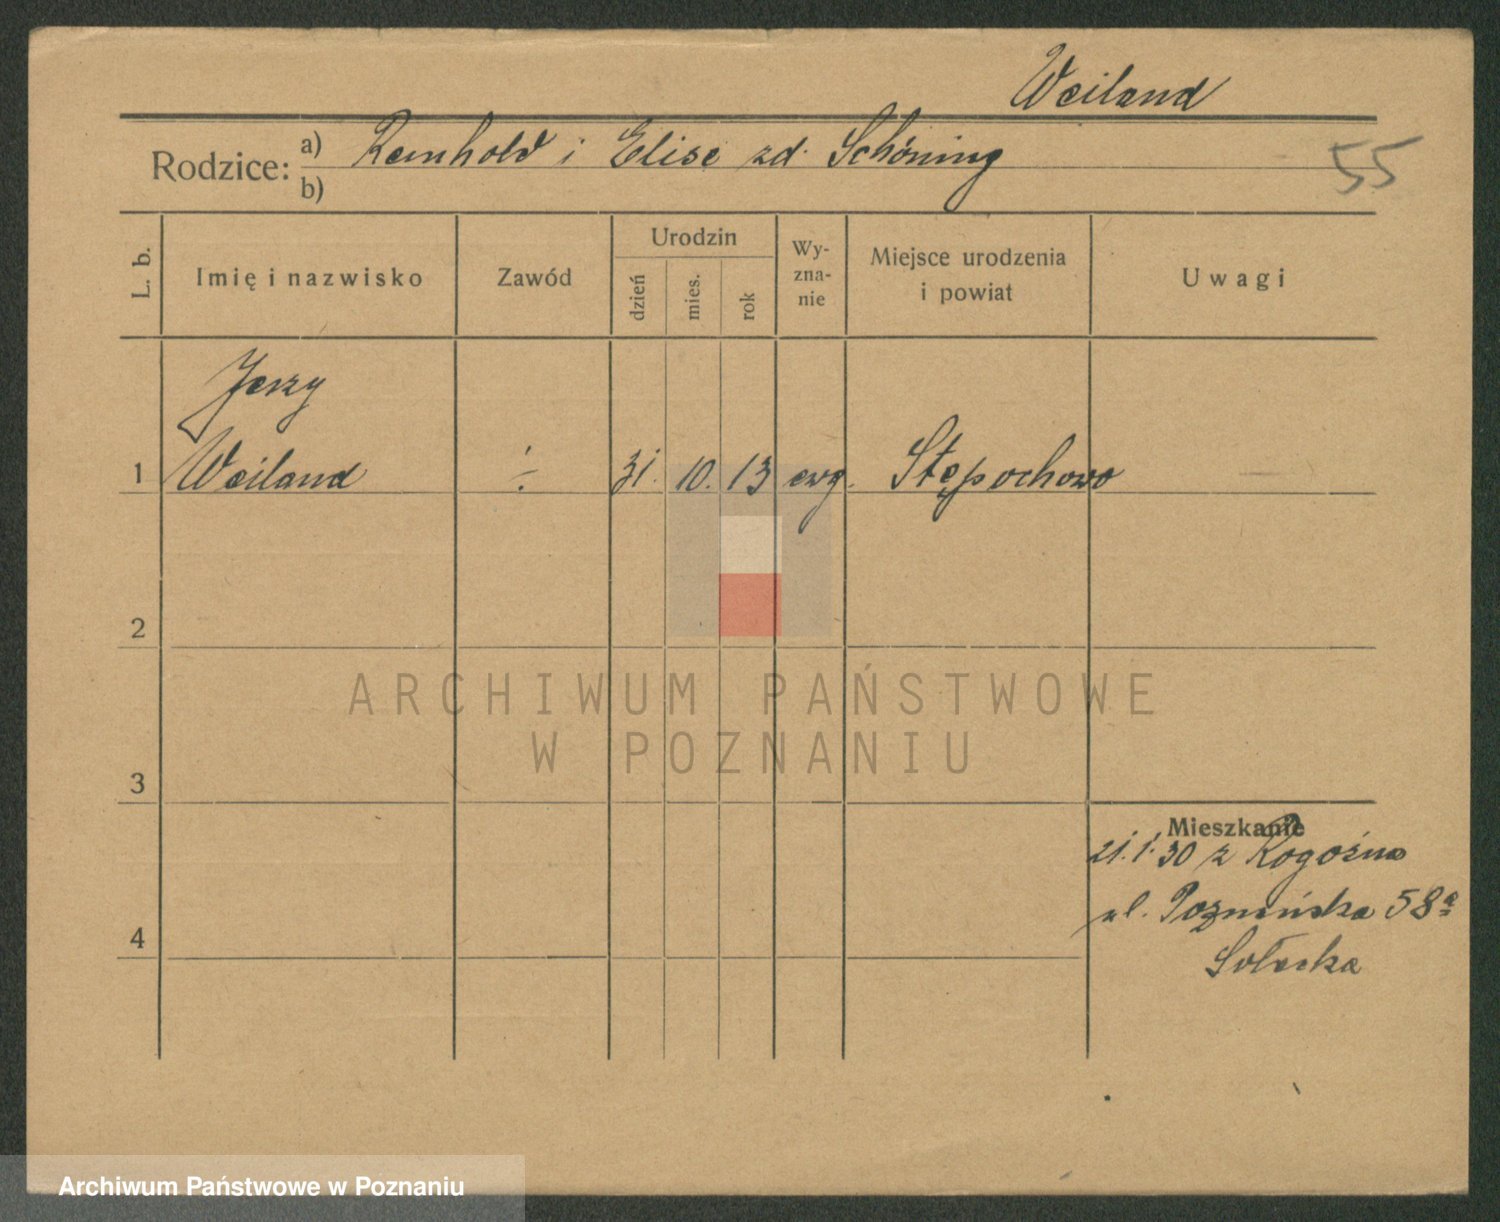 Weiland
Rodzice: a) Reinhold i Elise zd. Schöning
b)
55
L. b.
Imię i nazwisko
Zawód
Urodzin
dzień
mies.
rok
Wy-
zna-
nie
Miejsce urodzenia
i powiat
Uwagi
Jerzy
1 Weiland ÷ 31. 10. 13 ewg. Stępochowo
2
3
4
Mieszkanie
21.1.30 z Rogoźna
ul. Poznańska 58a
Sołacka
ARCHIWUM PAŃSTWOWE
W POZNANIU
Archiwum Państwowe w Poznaniu